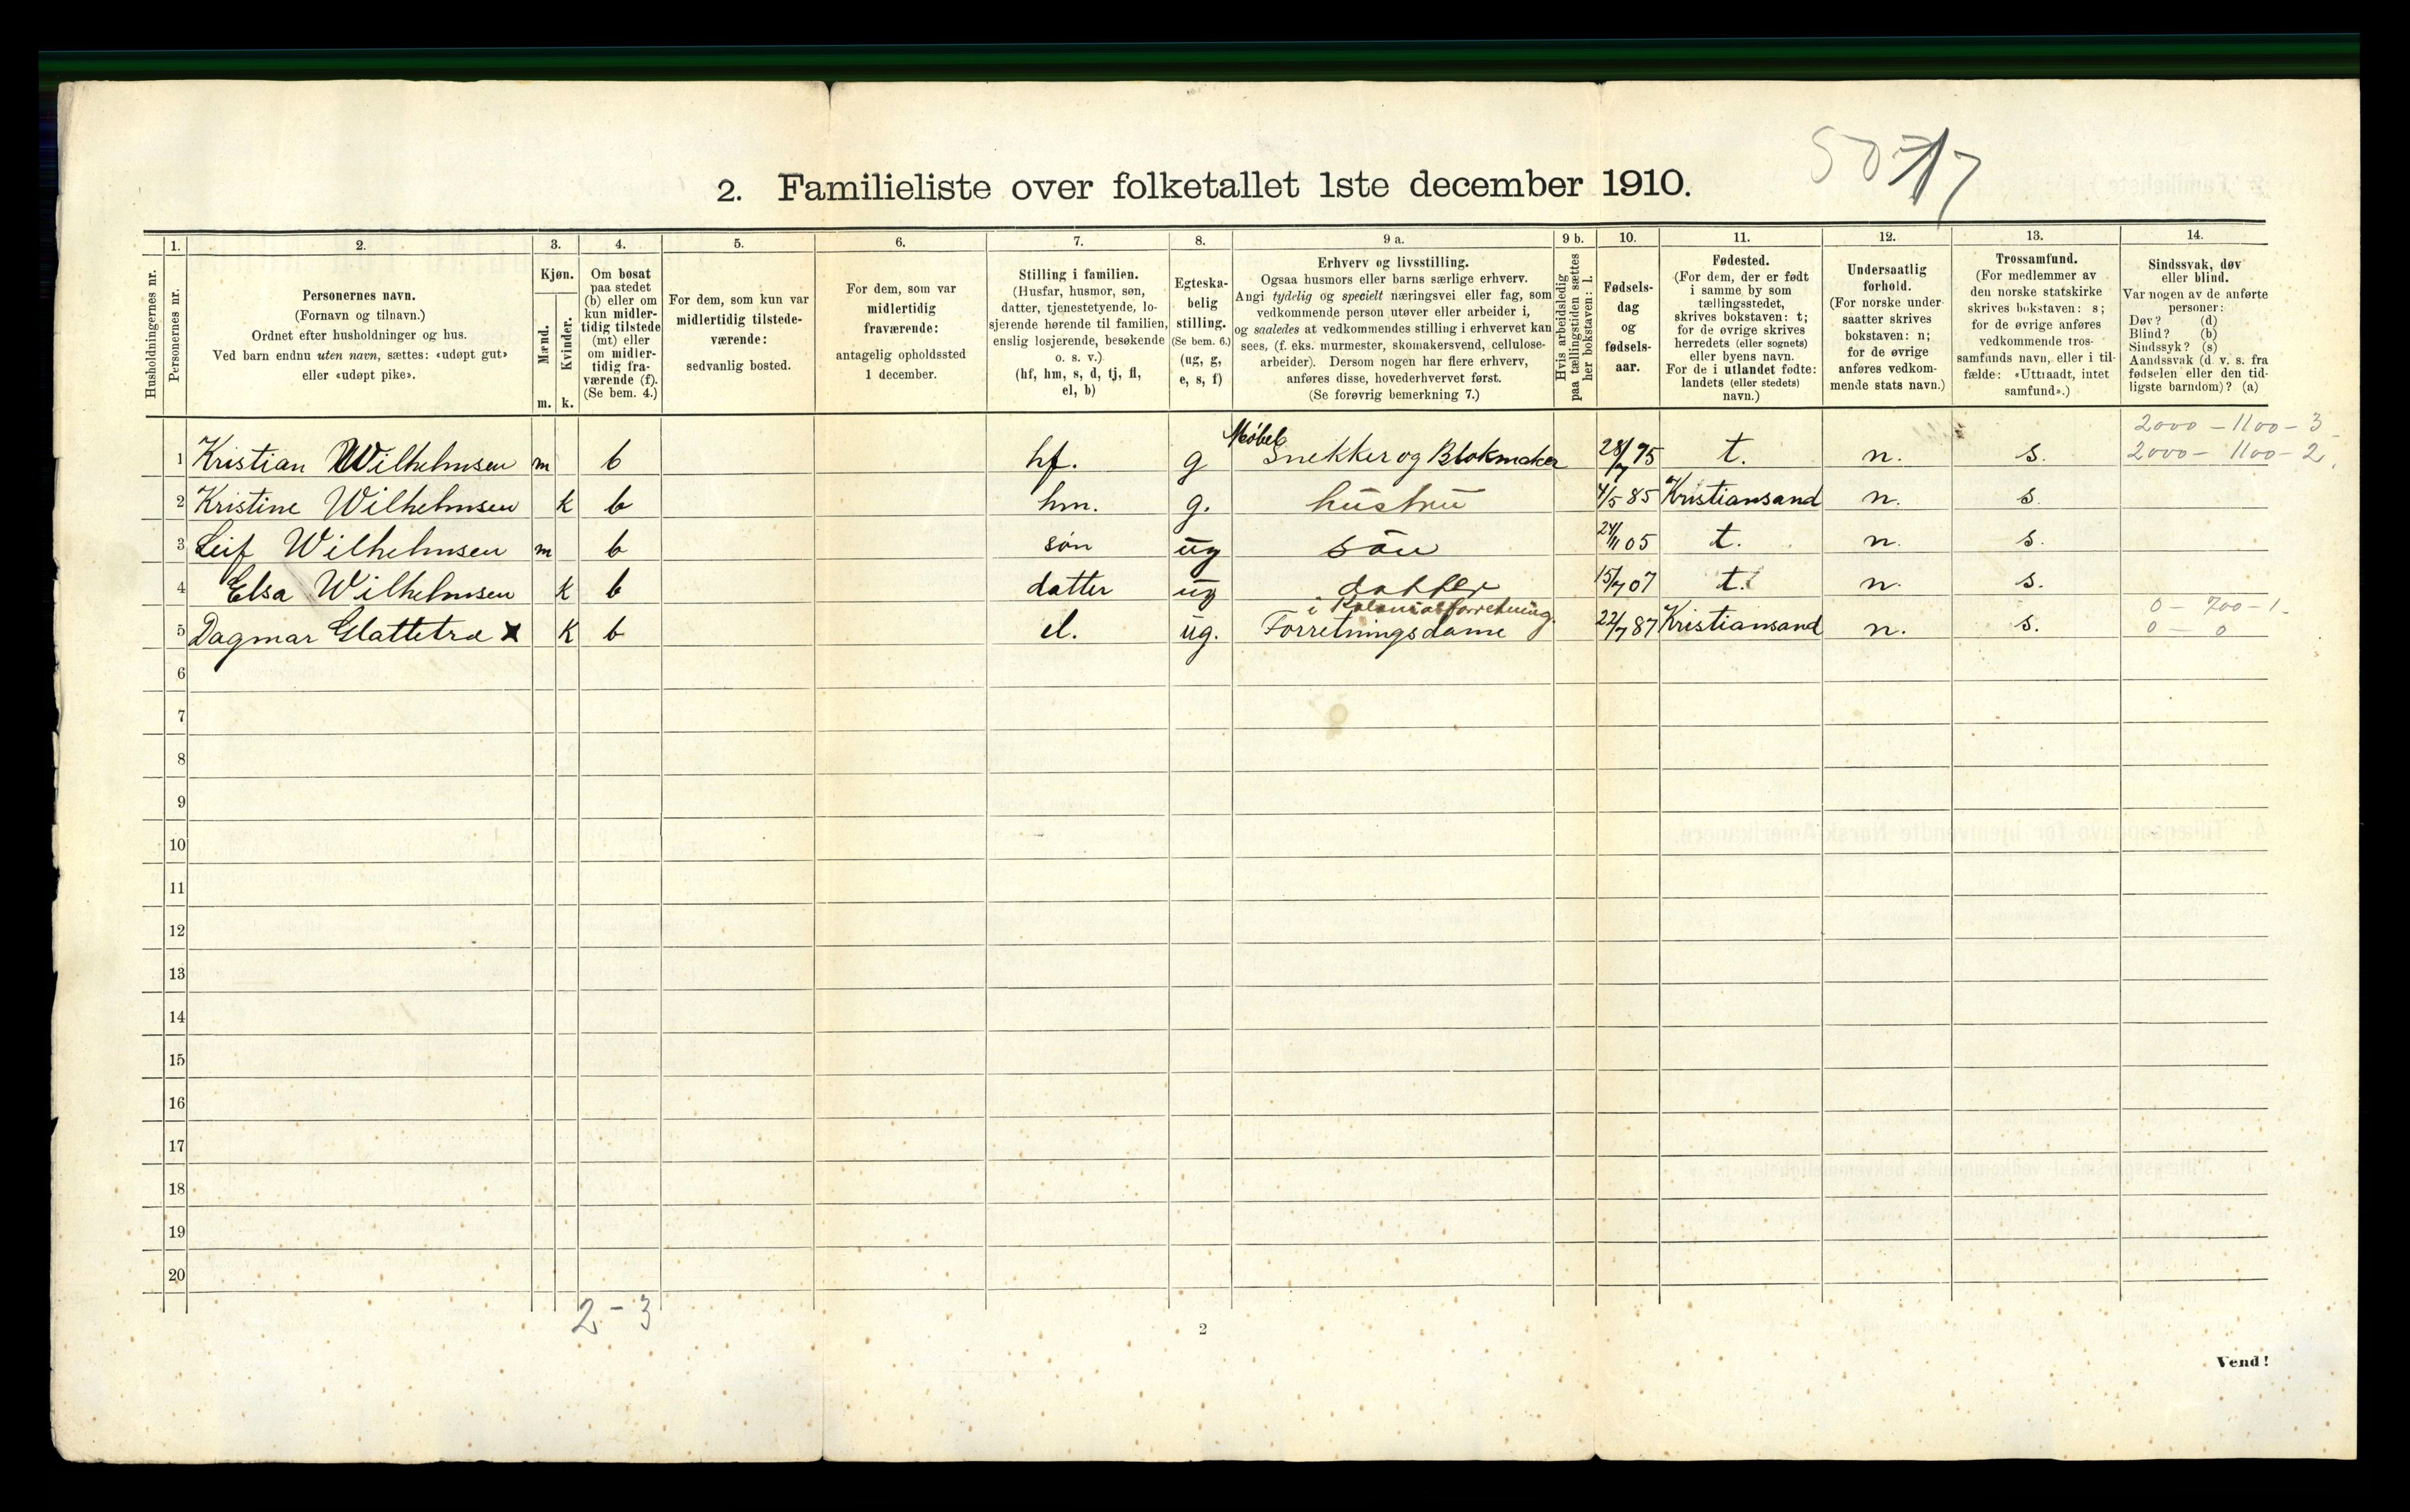 2. Familieliste over folketallet 1ste december 1910.
Husholdningernes nr.
1.
Personernes nr.
2.
Personernes navn.
(Fornavn og tilnavn.)
Ordnet efter husholdninger og hus.
Ved barn endnu uten navn, sættes: «udøpt gut»
eller «udøpt pike».
3.
Kjøn.
Mænd.
m.
Kvinder.
k.
4.
Om bosat
paa stedet
(b) eller om
kun midler-
tidig tilstede
(mt) eller
om midler-
tidig fra-
værende (f).
(Se bem. 4.)
5.
For dem, som kun var
midlertidig tilstede-
værende:
sedvanlig bosted.
6.
For dem, som var
midlertidig
fraværende:
antagelig opholdssted
1 december.
7.
Stilling i familien.
(Husfar, husmor, søn,
datter, tjenestetyende, lo-
sjerende hørende til familien,
enslig losjerende, besøkende
o. s. v.)
(hf, hm, s, d, tj, fl,
el, b)
8.
Egteska-
belig
stilling.
(Se bem. 6.)
(ug, g,
e, s, f)
9 a.
Erhverv og livsstilling.
Ogsaa husmors eller barns særlige erhverv.
Angi tydelig og specielt næringsvei eller fag, som
vedkommende person utøver eller arbeider i,
og saaledes at vedkommendes stilling i erhvervet kan
sees, (f. eks. murmester, skomakersvend, cellulose-
arbeider). Dersom nogen har flere erhverv,
anføres disse, hovederhvervet først.
(Se forøvrig bemerkning 7.)
9 b.
Hvis arbeidsledig
paa tællingstiden sættes
her bokstaven: l.
10.
Fødsels-
dag
og
fødsels-
aar.
11.
Fødested.
(For dem, der er født
i samme by som
tællingsstedet,
skrives bokstaven: t;
for de øvrige skrives
herredets (eller sognets)
eller byens navn.
For de i utlandet fødte:
landets (eller stedets)
navn.)
12.
Undersaatlig
forhold.
(For norske under-
saatter skrives
bokstaven: n;
for de øvrige
anføres vedkom-
mende stats navn.)
13.
Trossamfund.
(For medlemmer av
den norske statskirke
skrives bokstaven: s;
for de øvrige anføres
vedkommende tros-
samfunds navn, eller i til-
fælde: «Uttraadt, intet
samfund».)
14.
Sindssvak, døv
eller blind.
Var nogen av de anførte
personer:
Døv? (d)
Blind? (b)
Sindssyk? (s)
Aandssvak (d. v. s. fra
fødselen eller den tid-
ligste barndom)? (a)
2000 - 1100 - 3
Møbel
1 Kristian Wilhelmsen m b hf. g Snekker og Blokmaker 28/7 75 t. n. s. 2000 - 1100 - 2
2 Kristine Wilhelmsen k b hm. g. hustru 4/5 85 Kristiansand n. s.
3 Leif Wilhelmsen m b søn ug søn 24/11 05 t. n. s.
4 Elsa Wilhelmsen k b datter ug datter 15/7 07 t. n. s.
i Kolonialforretning. 0 - 700 - 1.
5 Dagmar Glattetre x K b el. ug. Forretningsdame 22/7 87 Kristiansand n. s. 0 - 0
6
7
8
9
10
11
12
13
14
15
16
17
18
19
20
2 - 3
2
Vend!